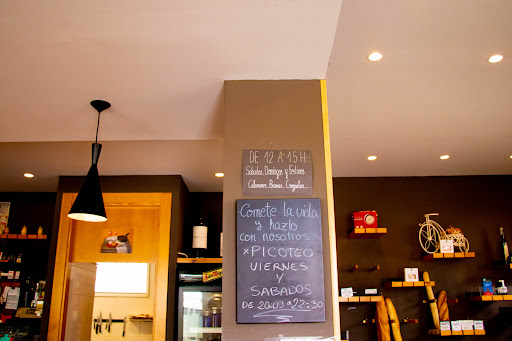 DE 12 A 15 H
Sábados, Domingos y Festivos
Calamares, Bravas, Croquetas...
Cómete la vida
y hazlo
con nosotros.
x PICOTEO
VIERNES
Y
SABADOS
DE 20:00 A 22:30